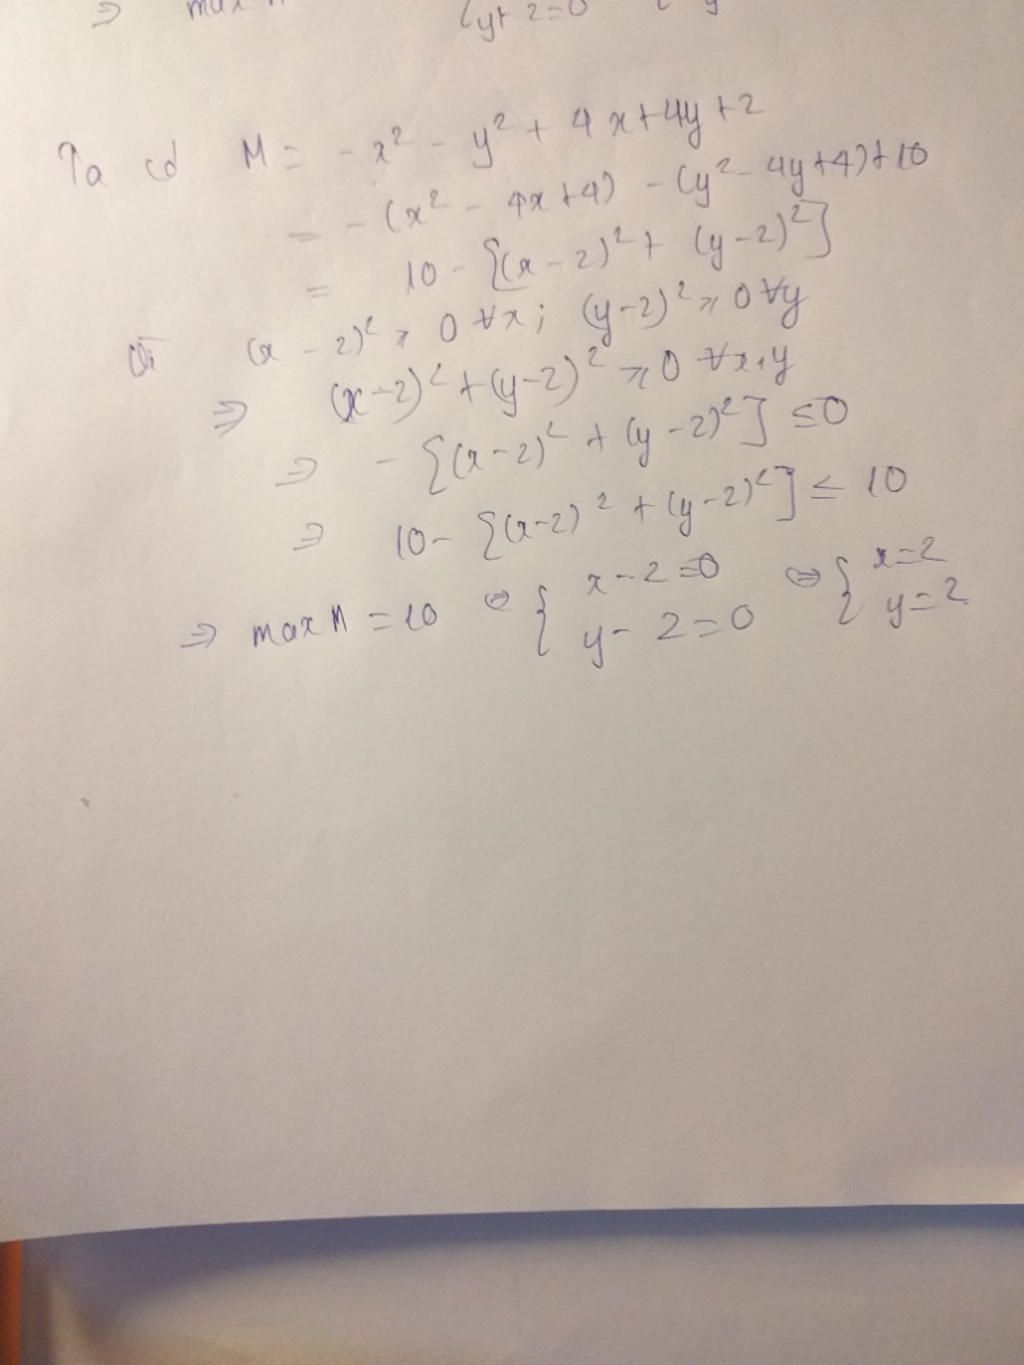 ⇒ max
{y+2=0 { y
Ta có M = -x² - y² + 4x+4y+2
= -(x² - 4x+4) - (y²- 4y+4)+10
= 10 - [(x-2)²+ (y-2)²]
Vì (x-2)² ≥ 0 ∀x; (y-2)² ≥ 0 ∀y
⇒ (x-2)²+(y-2)² ≥ 0 ∀x,y
⇒ - [(x-2)² + (y-2)²] ≤0
⇒ 10- [(x-2)² + (y-2)²] ≤ 10
⇒ max M = 10 ⇔ { x-2=0 ⇔ { x=2
y-2=0 y=2